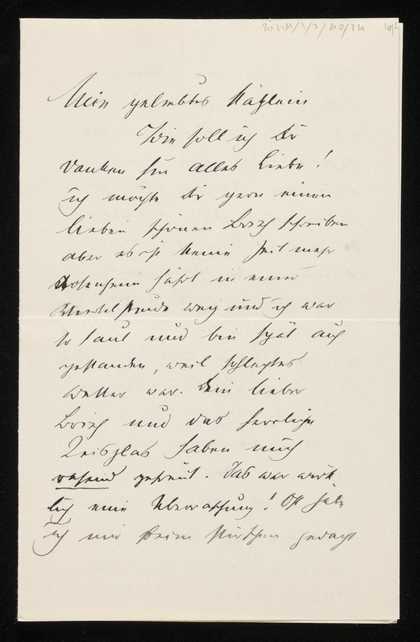 Mein geliebtes
Wie soll ich Dir
danken für alles Liebe!
ich möchte Dir gern einen
lieben schönen Brief schreiben
aber es ist keine Zeit mehr
fährt in einer
Viertelstunde weg und ich war
so faul und bin spät auf
gestanden, weil schlechtes
Wetter war. Dein lieber
Brief und das herrliche
haben mich
rasend gefreut. Das war wirk
lich eine Überraschung! Oft habe
ich mir beim gedacht